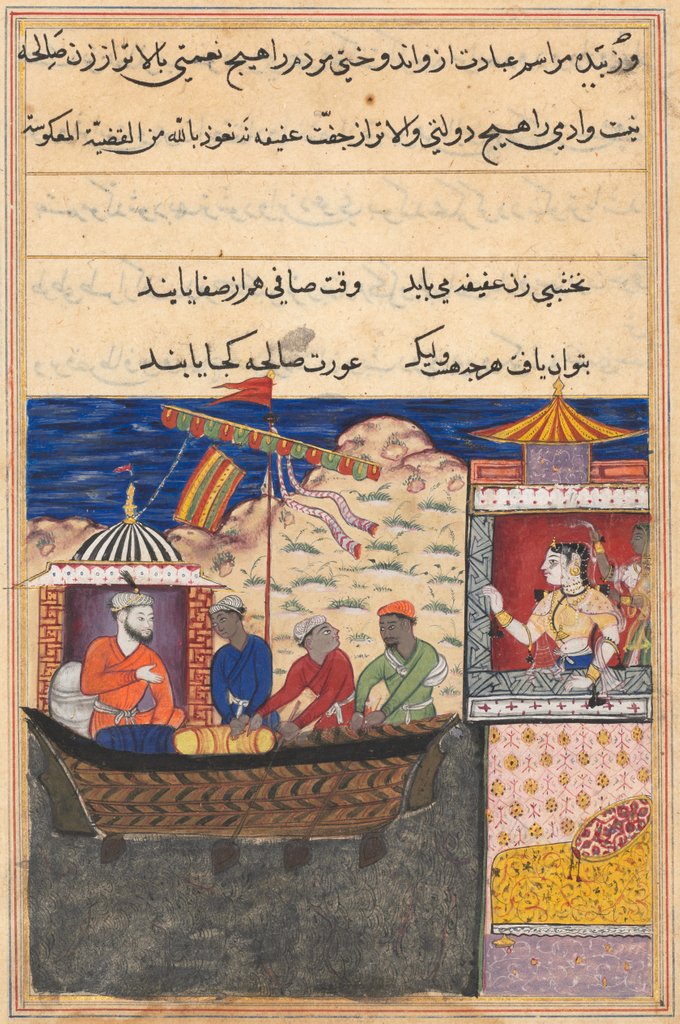 و زبده مراسم عبادت از واند وختی مردم را هیچ نعمتی بالاتر از زن صالحه
نیت وادمی را هیچ دولتی والاتر از جفت عفیفه نه نعوذ بالله من القضیة المعکوسة
نخشبی زن عفیفه می باید وقت صافی هم از صفا یابند
بتوان یافت هرچه هست ولیک عورت صالحه کجا یابند